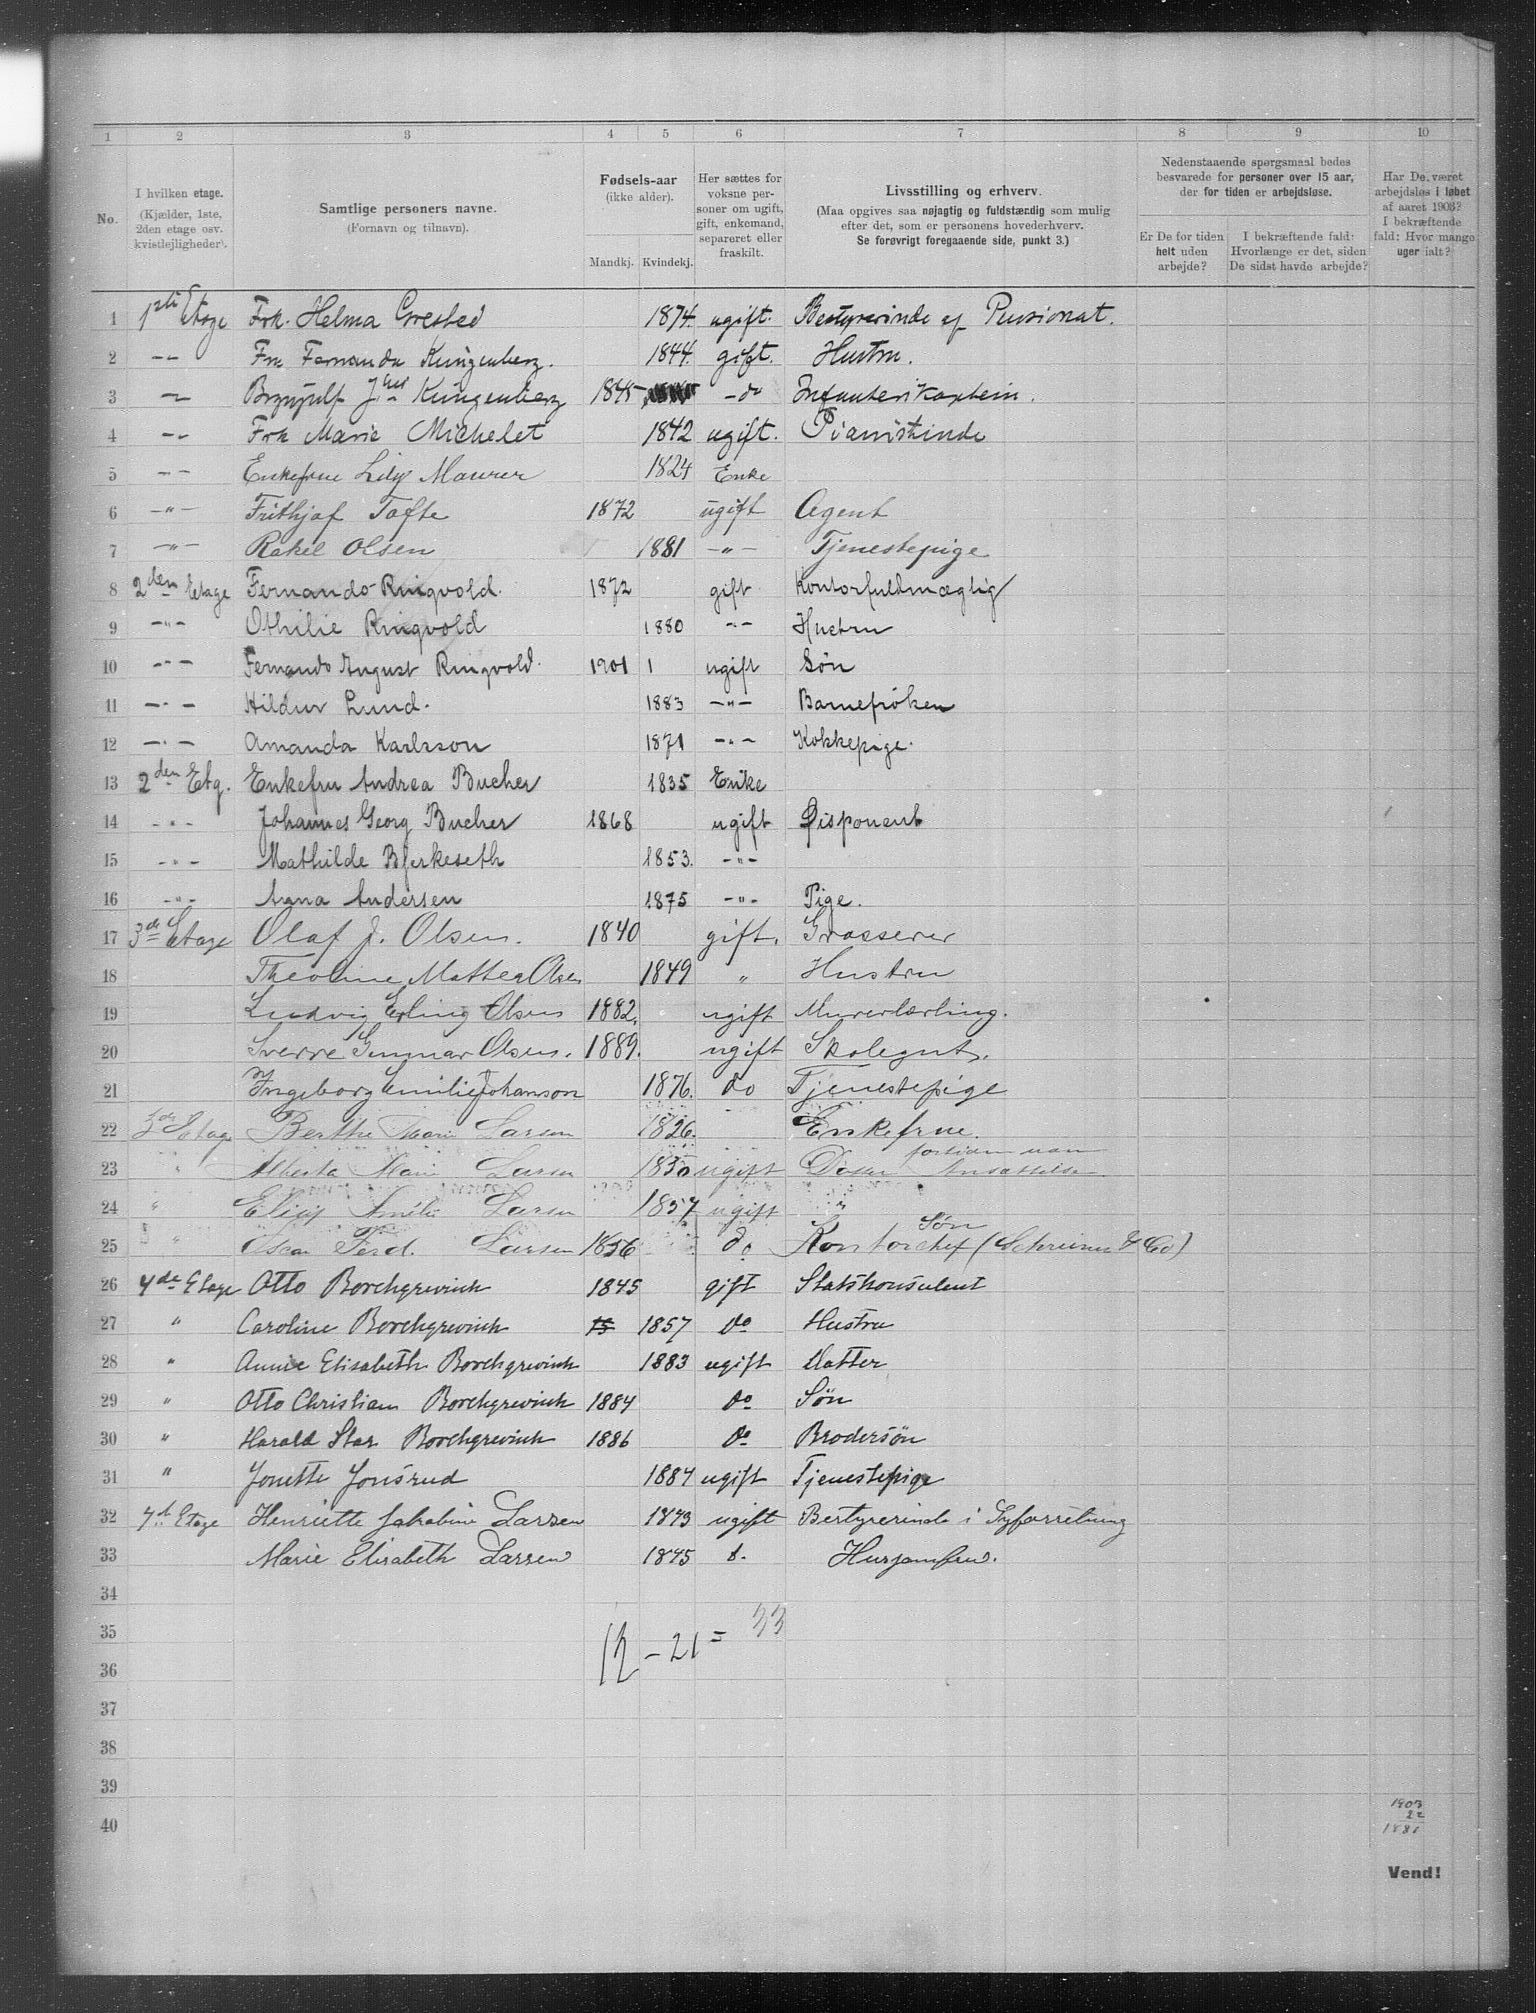 1 2 3 4 5 6 7 8 9 10
No.
I hvilken etage. (Kjælder, 1ste, 2den etage osv. kvistlejligheder).
Samtlige personers navne. (Fornavn og tilnavn).
Fødsels-aar (ikke alder). Mandkj. Kvindekj.
Her sættes for voksne personer om ugift, gift, enkemand, separeret eller fraskilt.
Livsstilling og erhverv. (Maa opgives saa nøjagtig og fuldstændig som mulig efter det, som er personens hovederhverv. Se forøvrigt foregaaende side, punkt 3.)
Nedenstaaende spørgsmaal bedes besvarede for personer over 15 aar, der for tiden er arbejdsløse.
Er De for tiden helt uden arbejde?
I bekræftende fald: Hvorlænge er det, siden De sidst havde arbejde?
Har De været arbejdsløs i løbet af aaret 1903? I bekræftende fald: Hvor mange uger ialt?
1 1ste Etage Frk. Helma 1874. ugift. Bestyrerinde af Pensionat.
2 -"- Fru Fernanda Klingenberg. 1844. gift. Hustru.
3 -"- Brynjulf Klingenberg 1845 -do Infanterikaptein.
4 -"- Frk Marie Michelet 1842 ugift. Pianistinde
5 -"- Enkefrue Lily Maurer 1824 Enke
6 -"- Frithjof Tofte 1872 ugift Agent
7 -"- Rakel Olsen 1881 -"- Tjenestepige
8 2den Etage Fernando Ringvold. 1872 gift Kontorfuldmægtig
9 -"- Othilie Ringvold 1880 -"- Hustru
10 -"- Fernando August Ringvold. 1901 1 ugift Søn
11 -"- Hildur Lund. 1883 -"- Barnefrøken
12 -"- Amanda Karlsson 1871 -"- Kokkepige.
13 2den Etg. Enkefru Andrea Bucher 1835 Enke
14 -"- Johannes Georg Bucher 1868 ugift Disponent
15 -"- Mathilde Bjerkeseth 1853. -"-
16 -"- Anna Andersen 1875 -"- Pige.
17 3de Etage Olaf J. Olsen. 1840 gift. Grosserer
18 Theoline Mathea Olsen 1849 " Hustru
19 Ludvig Erling Olsen 1882, ugift Murerlærling.
20 Sverre Gunnar Olsen. 1889. ugift Skolegut.
21 Ingeborg Emilie Johanson 1876. do Tjenestepige
22 3de Etage Berthe Marie Larsen 1826. Enkefrue.
23 " Alberta Marie Larsen 1850 ugift Datter
24 " Amalie Larsen 1857 ugift "
25 " Oscar Ferd. Larsen 1856 do Søn Kontorchef (Schreiner & Co)
26 4de Etage Otto Borchgrevink 1845 gift Statskonsulent
27 " Caroline Borchgrevink 1857 do Hustru
28 " Annie Elisabeth Borchgrevink 1883 ugift Datter
29 " Otto Christian Borchgrevink 1884 do Søn
30 " Harald Star Borchgrevink 1886 do Brodersøn
31 " Jonette Jonsrud 1884 ugift Tjenestepige
32 4de Etage Henriette Jakobine Larsen 1843 ugift Bestyrerinde i Syforretning
33 Marie Elisabeth Larsen 1845 d. Husjomfru.
34
35
12 - 21 = 33
36
37
38
39
40
1903
22
1881
Vend!